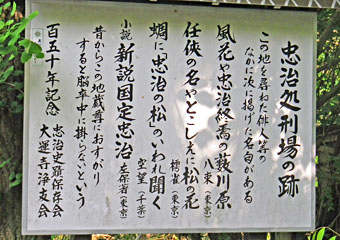 忠治処刑場の跡
この地を尋ねた俳人等の
なかに次に掲げた名句がある
風花や忠治終焉の薮川原
八東(東京)
任侠の名やとこしえに松の花
樗雀(東京)
蜩に「忠治の松」のいわれ聞く
空望(千葉)
小説 新説国定忠治 左保香(東京)
昔からこの地蔵尊におすがり
すると脳卒中に掛らないという
百五十年記念
忠治史蹟保存会
大運寺浄友会